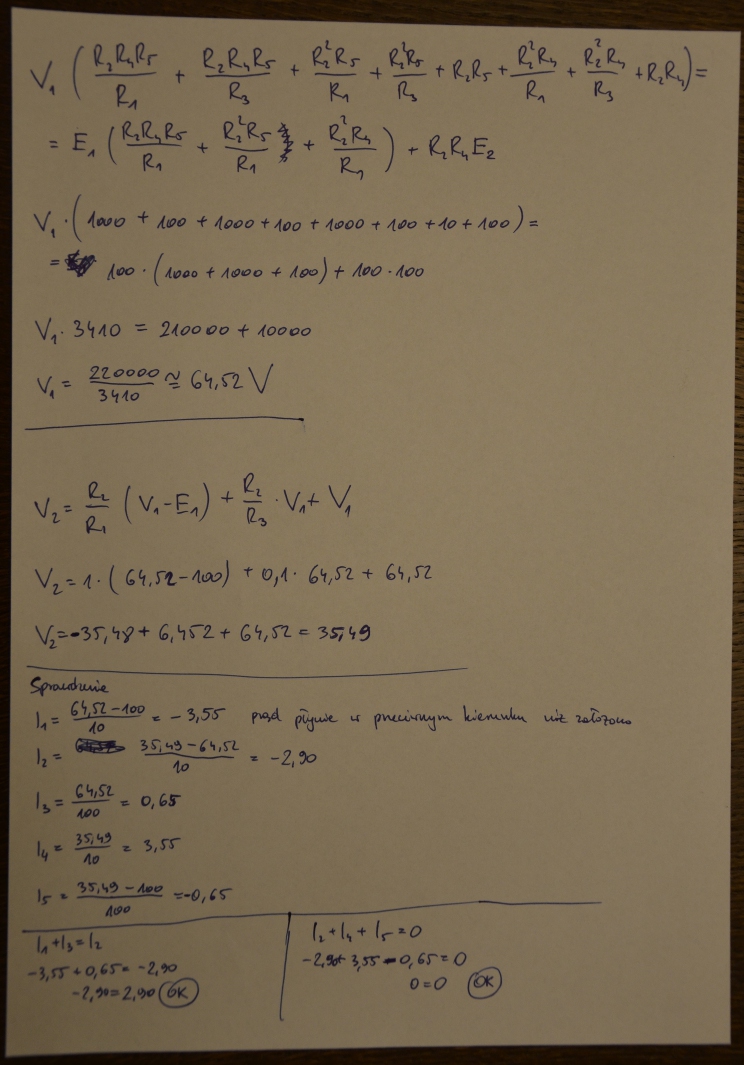 V₁ (R₂R₄R₅/R₁ + R₂R₄R₅/R₃ + R₂²R₅/R₁ + R₂²R₅/R₃ + R₂R₅ + R₂²R₄/R₁ + R₂²R₄/R₃ + R₂R₄) =
= E₁ (R₂R₄R₅/R₁ + R₂²R₅/R₁ + R₂²R₄/R₁) + R₂R₄E₂
V₁ · (1000 + 100 + 1000 + 100 + 1000 + 100 + 10 + 100) =
= 100 · (1000 + 1000 + 100) + 100 · 100
V₁ · 3410 = 210000 + 10000
V₁ = 220000/3410 ≅ 64,52 V
V₂ = R₂/R₁ (V₁ - E₁) + R₂/R₃ · V₁ + V₁
V₂ = 1 · (64,52 - 100) + 0,1 · 64,52 + 64,52
V₂ = -35,48 + 6,452 + 64,52 = 35,49
Sprawdzenie
I₁ = 64,52 - 100/10 = -3,55 prąd płynie w przeciwnym kierunku niż założono
I₂ = 35,49 - 64,52/10 = -2,90
I₃ = 64,52/100 = 0,65
I₄ = 35,49/10 = 3,55
I₅ = 35,49 - 100/100 = -0,65
I₁ + I₃ = I₂
-3,55 + 0,65 = -2,90
-2,90 = 2,90 OK
I₂ + I₄ + I₅ = 0
-2,90 + 3,55 - 0,65 = 0
0 = 0 OK